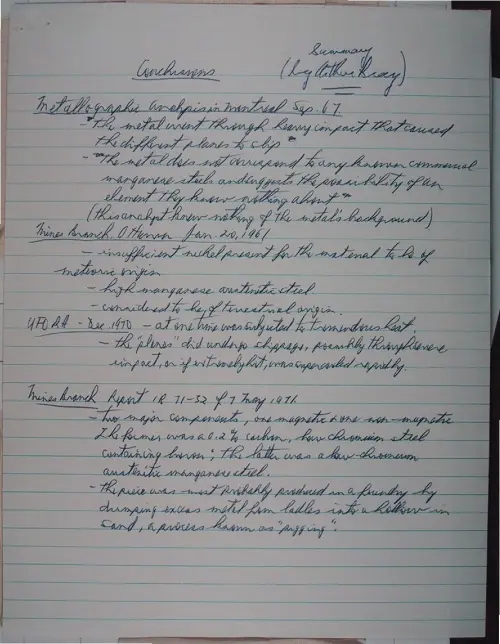 Summary
Conclusions (by Arthur Bray)
Metallographic analysis in Montreal Sep. 67
- "The metal went through heavy impact that caused
the different planes to slip"
- "The metal does not correspond to any known commercial
manganese steels and suggests the possibility of an
element they know nothing about"
(this analyst knew nothing of the metal's background)
Mines Branch, Ottawa Jan. 20, 1961
- insufficient nickel present for the material to be of
meteoric origin
- high manganese austenitic steel
- considered to be of terrestrial origin.
- Dec 1970 - at one time was subjected to tremendous heat.
- the "planes" did undergo slippage, possibly through severe
impact, or if extremely hot, was supercooled rapidly.
Mines Branch Report IR 71-32 of 7 May 1971
- two major components, one magnetic & one non-magnetic
The former was a 0.2% carbon, low chromium steel
containing boron; the latter was a low-chromium
austenitic manganese steel.
- the piece was most probably produced in a foundry by
dumping excess metal from ladles into a hollow in
sand, a process known as "pigging".